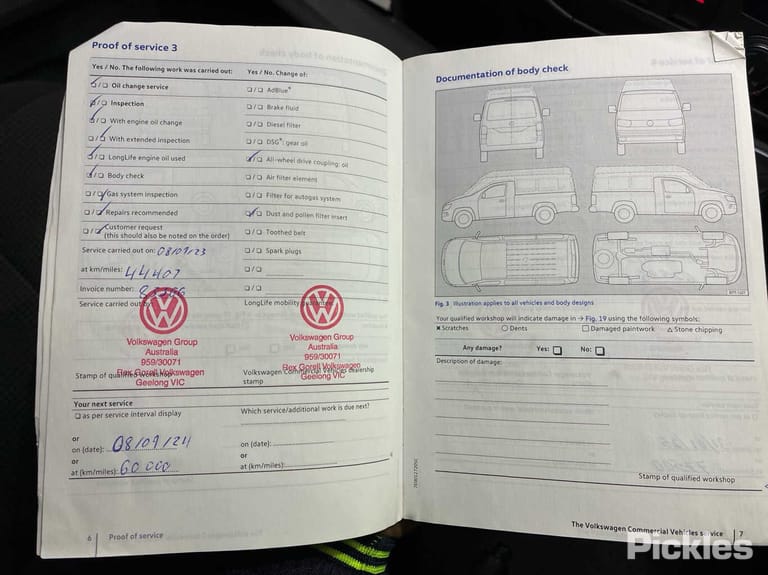 Proof of service 3
Yes / No. The following work was carried out:
❑/❑ Oil change service
❑/❑ Inspection
❑/❑ With engine oil change
❑/❑ With extended inspection
❑/❑ LongLife engine oil used
❑/❑ Body check
❑/❑ Gas system inspection
❑/❑ Repairs recommended
❑/❑ Customer request
(this should also be noted on the order)
Service carried out on: 08/09/23
at km/miles: 44407
Invoice number:
Service carried out by
Volkswagen Group
Australia
959/30071
Rex Gorell Volkswagen
Geelong VIC
Stamp of qualified workshop
Yes / No. Change of:
❑/❑ AdBlue®
❑/❑ Brake fluid
❑/❑ Diesel filter
❑/❑ DSG®: gear oil
❑/❑ All-wheel drive coupling: oil
❑/❑ Air filter element
❑/❑ Filter for autogas system
❑/❑ Dust and pollen filter insert
❑/❑ Toothed belt
❑/❑ Spark plugs
❑/❑
❑/❑
LongLife mobility guarantee
Volkswagen Group
Australia
959/30071
Rex Gorell Volkswagen
Geelong VIC
Volkswagen Commercial Vehicles dealership
stamp
Your next service
❑ as per service interval display
or
on (date): 08/09/24
or
at (km/miles): 60 000
Which service/additional work is due next?
on (date):
or
at (km/miles):
6 Proof of service
Documentation of body check
Fig. 3 Illustration applies to all vehicles and body designs
Your qualified workshop will indicate damage in → Fig. 19 using the following symbols:
✕ Scratches ○ Dents ❑ Damaged paintwork △ Stone chipping
Any damage? Yes: ❑ No: ❑
Description of damage:
Stamp of qualified workshop
The Volkswagen Commercial Vehicles service 7
Pickles